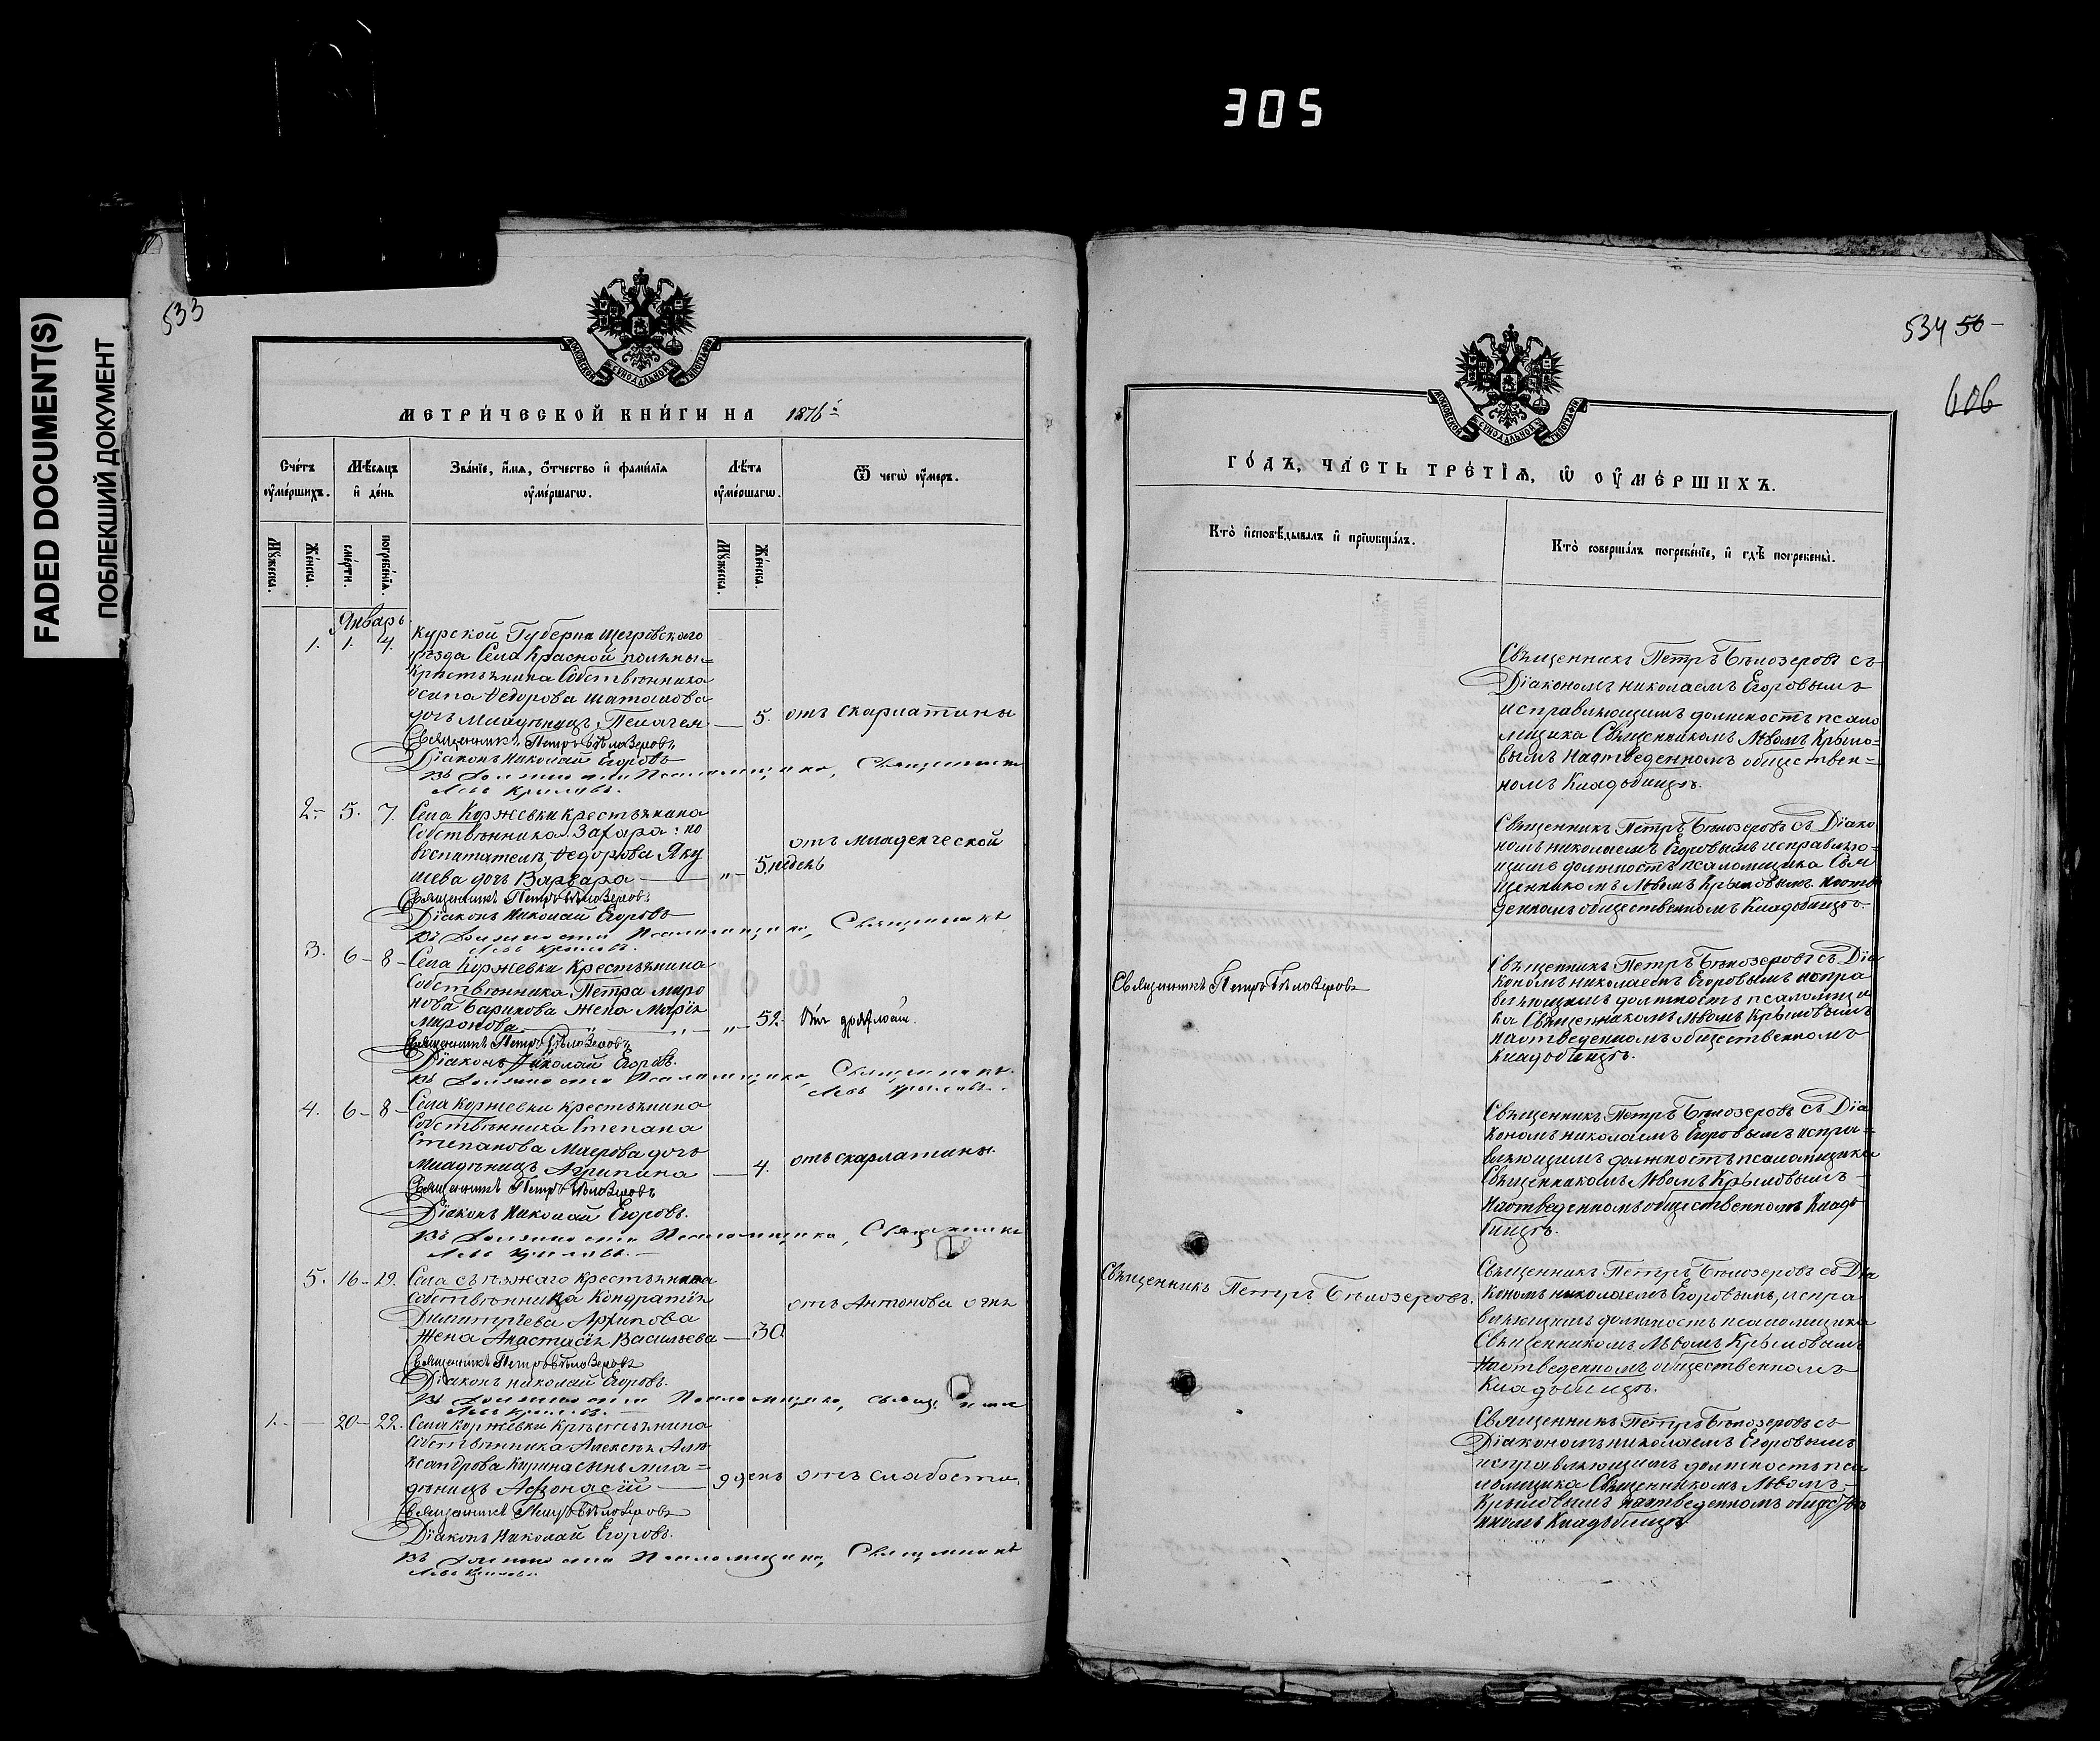 305
FADED DOCUMENT(S)
ПОБЛЕКШИЙ ДОКУМЕНТ
533
МОСКОВСКОЙ СѴНОДАЛЬНОЙ ТИПОГРАФІИ
МЕТРИ́ЧЕСКОЙ КНИ́ГИ НА 1876
Сче́тъ ᲂу҆ме́ршихъ.
Мѣ́сяцъ и҆ де́нь
Зва́нїе, и҆́мѧ, ѻ҆́тчество и҆ фами́лїѧ ᲂу҆ме́ршагѡ.
Лѣ́та ᲂу҆ме́ршагѡ.
Ѿ чегѡ̀ ᲂу҆́меръ.
Мꙋ́жеска.
Же́нска.
сме́рти.
погребе́нїѧ.
Мꙋ́жеска.
Же́нска.
Январь
1. 1. 4. Курской Губерни Щегровскаго
уѣзда Села Красной поляны=
Крестьянина Собственника
Осипа Ѳедорова Шаталова
дочь младенецъ Пелагея — 5. отъ скарлатины
Священникъ Петръ Бѣлозеровъ
Діаконъ Николай Егоровъ
въ должности Псаломщика, Священникъ
Левъ Крыловъ.
2.- 5. 7. Села Коржевки крестьянина
Собственника Захара: по
воспитателѣ Ѳедорова Яку
шева дочь Варвара — „ — 5. недѣль отъ младенческой
Священникъ Петръ Бѣлозеровъ
Діаконъ Николай Егоровъ
въ должности Псаломщика, Священникъ
Левъ Крыловъ.
3. 6 - 8 - Села Коржевки крестьянина
Собственника Петра Миро
нова Барикова жена Марія
Миронова — „ — 52.
Священникъ Петръ Бѣлозеровъ
Діаконъ Николай Егоровъ.
въ должности Псаломщика, Священникъ
Левъ Крыловъ.
4. 6 - 8 - Села Коржевки крестьянина
Собственника Степана
Степанова дочь
младенецъ Агрипина — 4. отъ скарлатины.
Священникъ Петръ Бѣлозеровъ
Діаконъ Николай Егоровъ.
въ должности Псаломщика, Священникъ
Левъ Крыловъ. —
5. 16 - 19. Села Съѣзжаго крестьянина
собственника Кондратія
Димитріева Архипова
жена Анастасія Васильева — 30 отъ Антонова огня
Священникъ Петръ Бѣлозеровъ
Діаконъ Николай Егоровъ.
въ должности Псаломщика,
Левъ Крыловъ.
1. - — 20 - 22. Села Коржевки крестьянина
собственника Алексѣя Але
ксандрова Кирина сынъ мла=
денецъ Афонасій — 9 день отъ слабости.
Священникъ Петръ Бѣлозеровъ
Діаконъ Николай Егоровъ.
въ должности Псаломщика, Священникъ
Левъ Крыловъ.
534 56 -
606
МОСКОВСКОЙ СѴНОДАЛЬНОЙ ТИПОГРАФІИ
ГО́ДЪ, ЧА́СТЬ ТРЕ́ТЇѦ, Ѡ҆ ОУ҆МЕ́РШИХЪ.
Кто̀ и҆сповѣ́дывалъ и҆ прїѡбща́лъ.
Кто̀ соверша́лъ погребе́нїе, и҆ гдѣ̀ погребены̀.
Священникъ Петръ Бѣлозеровъ съ
Діакономъ Николаемъ Егоровымъ
исправляющимъ должность псало
мщика Священникомъ Львомъ Крыло=
вымъ на отведенномъ обществен=
номъ кладбищѣ.
Священникъ Петръ Бѣлозеровъ съ Діако
номъ Николаемъ Егоровымъ исправляю=
щимъ должность псаломщика Свя
щенникомъ Львомъ Крыловымъ на отве
денномъ общественномъ кладбищѣ.
Священникъ Петръ Бѣлозеровъ
Священникъ Петръ Бѣлозеровъ съ Діа
кономъ Николаемъ Егоровымъ испра
вляющимъ должность псаломщи
ка Священникомъ Львомъ Крыловымъ
на отведенномъ общественномъ
кладбищѣ.
Священникъ Петръ Бѣлозеровъ съ Діа
кономъ Николаемъ Егоровымъ испра=
вляющимъ должность псаломщика
Священникомъ Львомъ Крыловымъ —
на отведенномъ общественномъ кладь
бищѣ.
Священникъ Петръ Бѣлозеровъ.
Священникъ Петръ Бѣлозеровъ съ Діа
кономъ Николаемъ Егоровымъ, испра
вляющимъ должность псаломщика
Священникомъ Львомъ Крыловымъ
на отведенномъ общественномъ
кладьбищѣ.
Священникъ Петръ Бѣлозеровъ съ
Діакономъ Николаемъ Егоровымъ
исправляющимъ должность пса
ломщика Священникомъ Львомъ
Крыловымъ на отведенномъ обществе
нномъ кладьбищѣ.